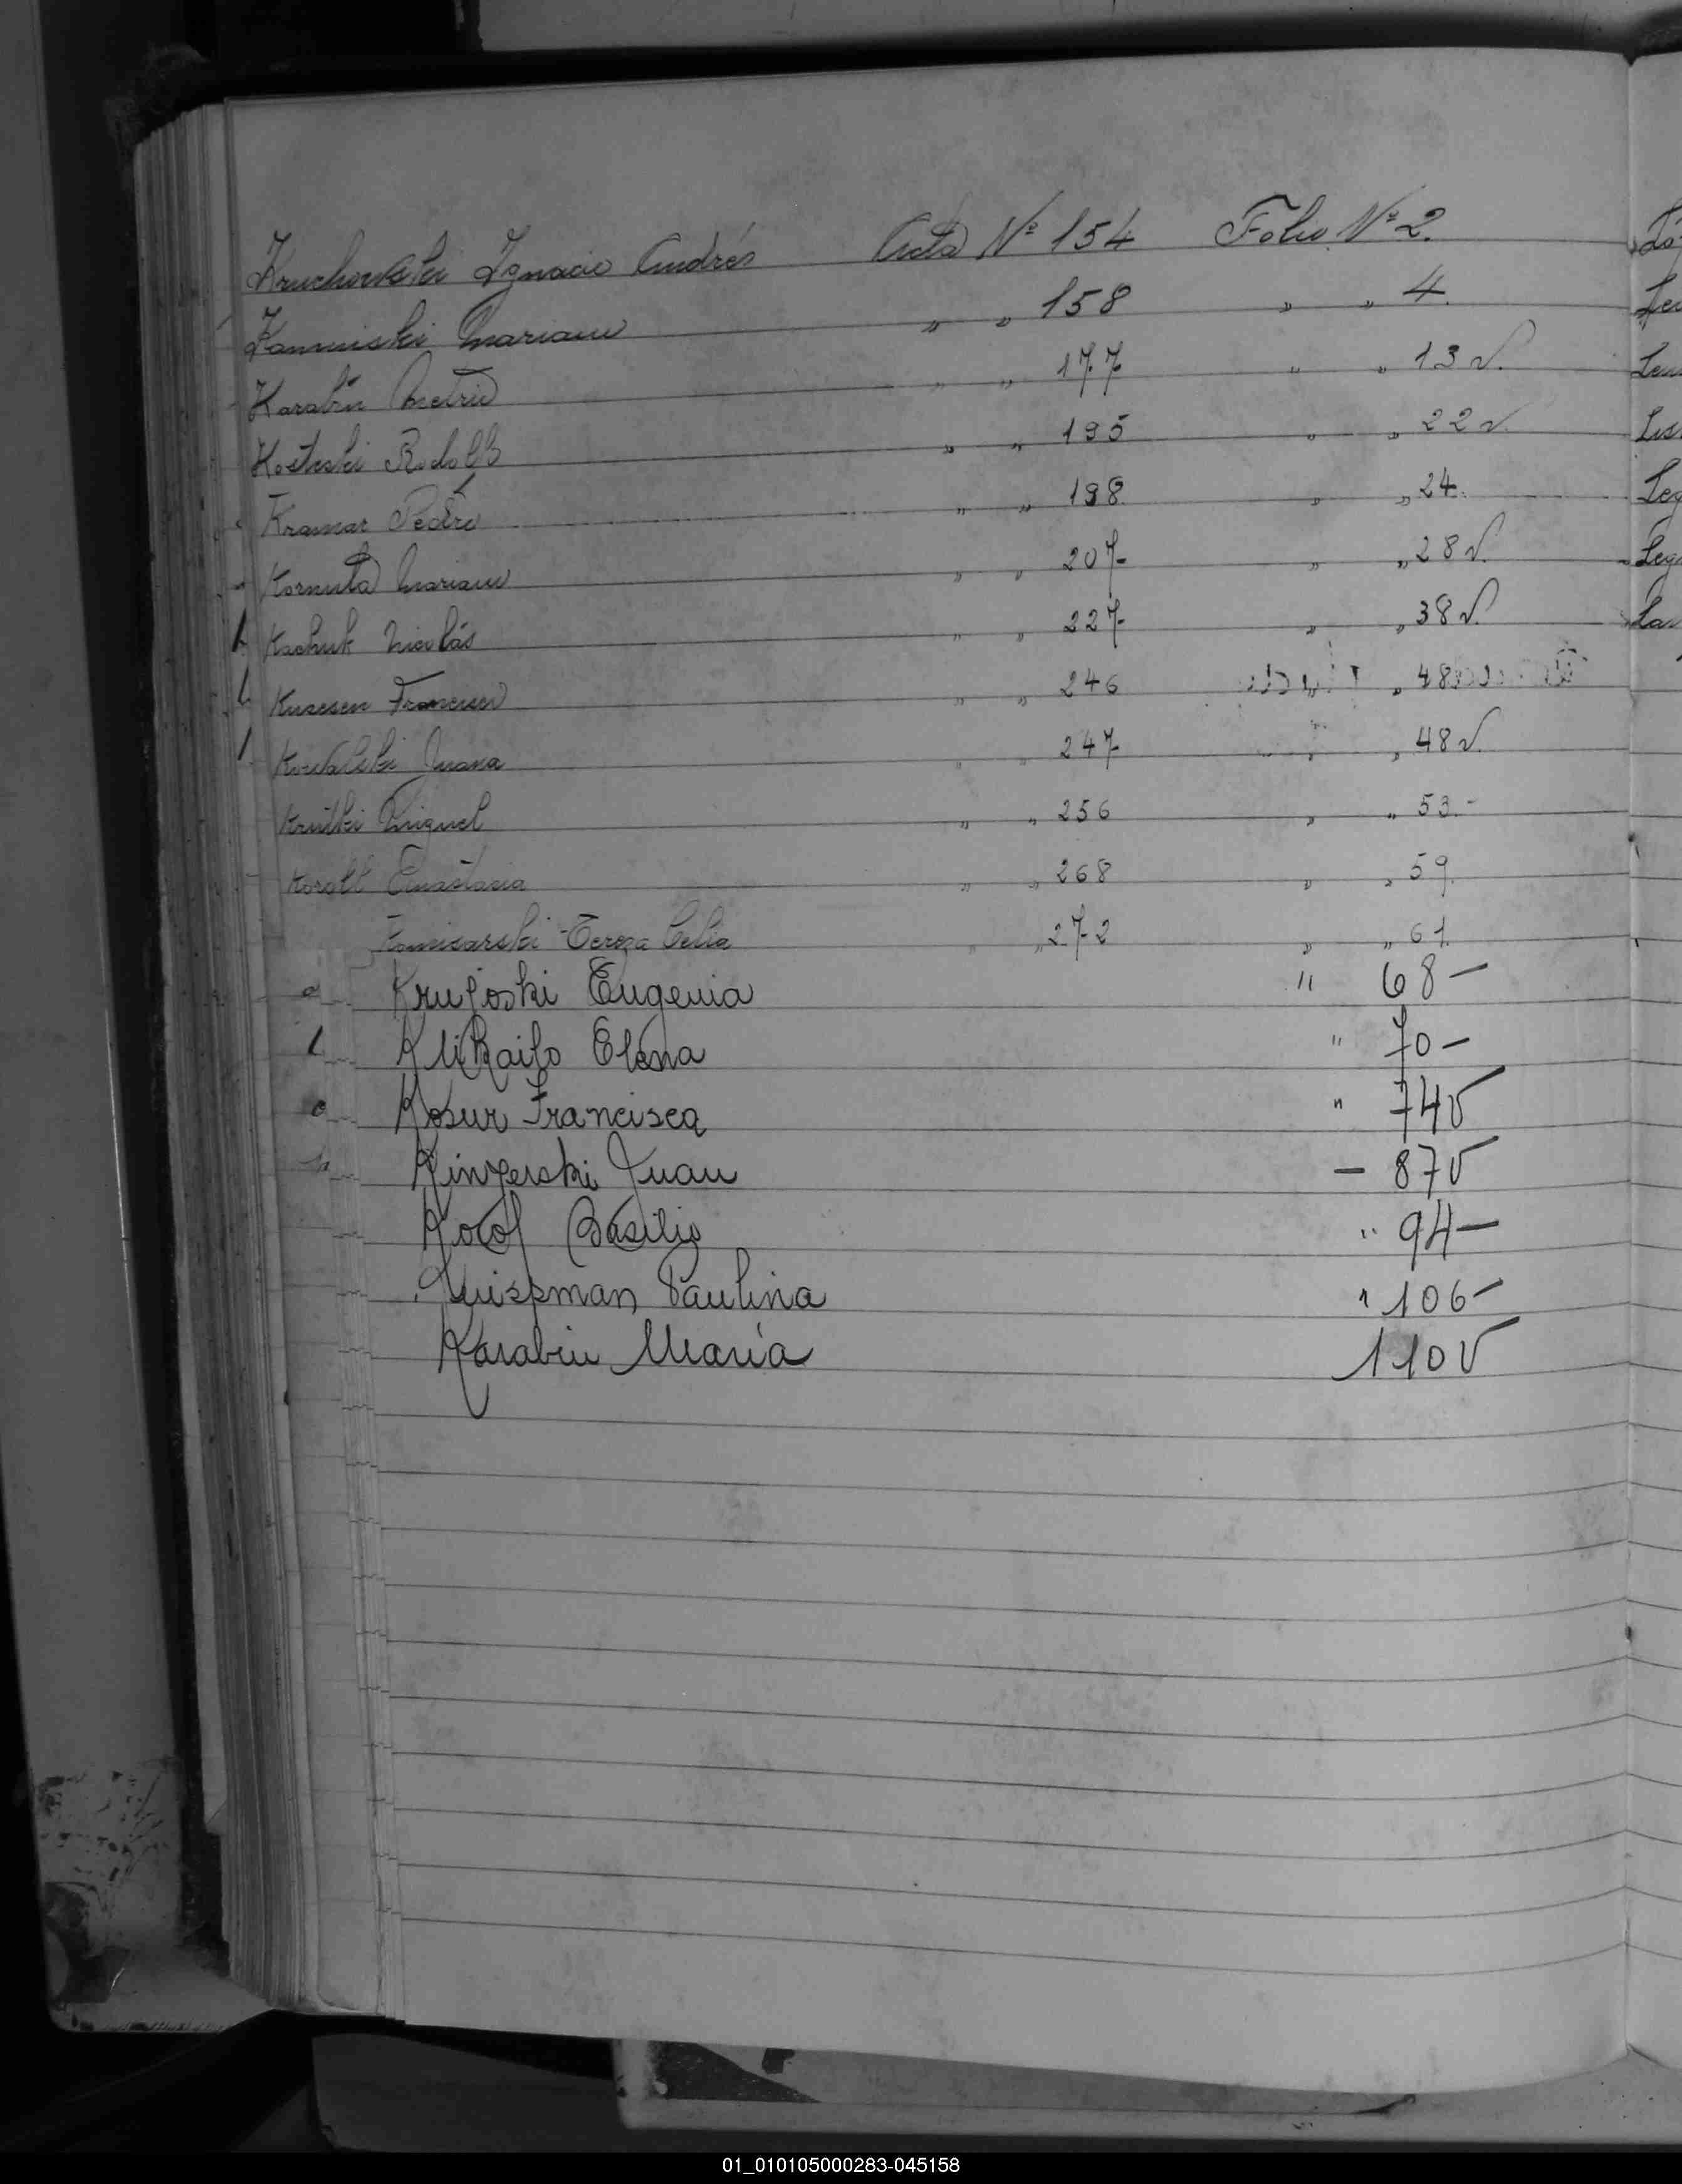 Kruchowski Ignacio Andrés Acta Nº 154 Folio Nº 2.
Kaminski Mariano " " 158 " " 4.
Karabin Metrio " " 177 " " 13 v.
Kosteski Rodolfo " " 195 " " 22 v.
Kramar Pedro " " 198 " " 24.
Kornuta Mariano " " 207 " " 28 v.
Kachuk Nicolás " " 227 " " 38 v.
Francisco " " 246 " 48
Kowalski Juana " " 247 " " 48 v.
Krutki Miguel " " 256 " " 53.-
Koroll Anastasia " " 268 " " 59.
Komisarski Tereza Celia " " 272 " " 61.
Krujoski Eugenia " 68 -
Elena " 70 -
Kosur Francisca " 74 v
Juan - 87 v
Kocol Basilio " 94 -
Paulina " 106 -
Karabin María 110 v
01_010105000283-045158